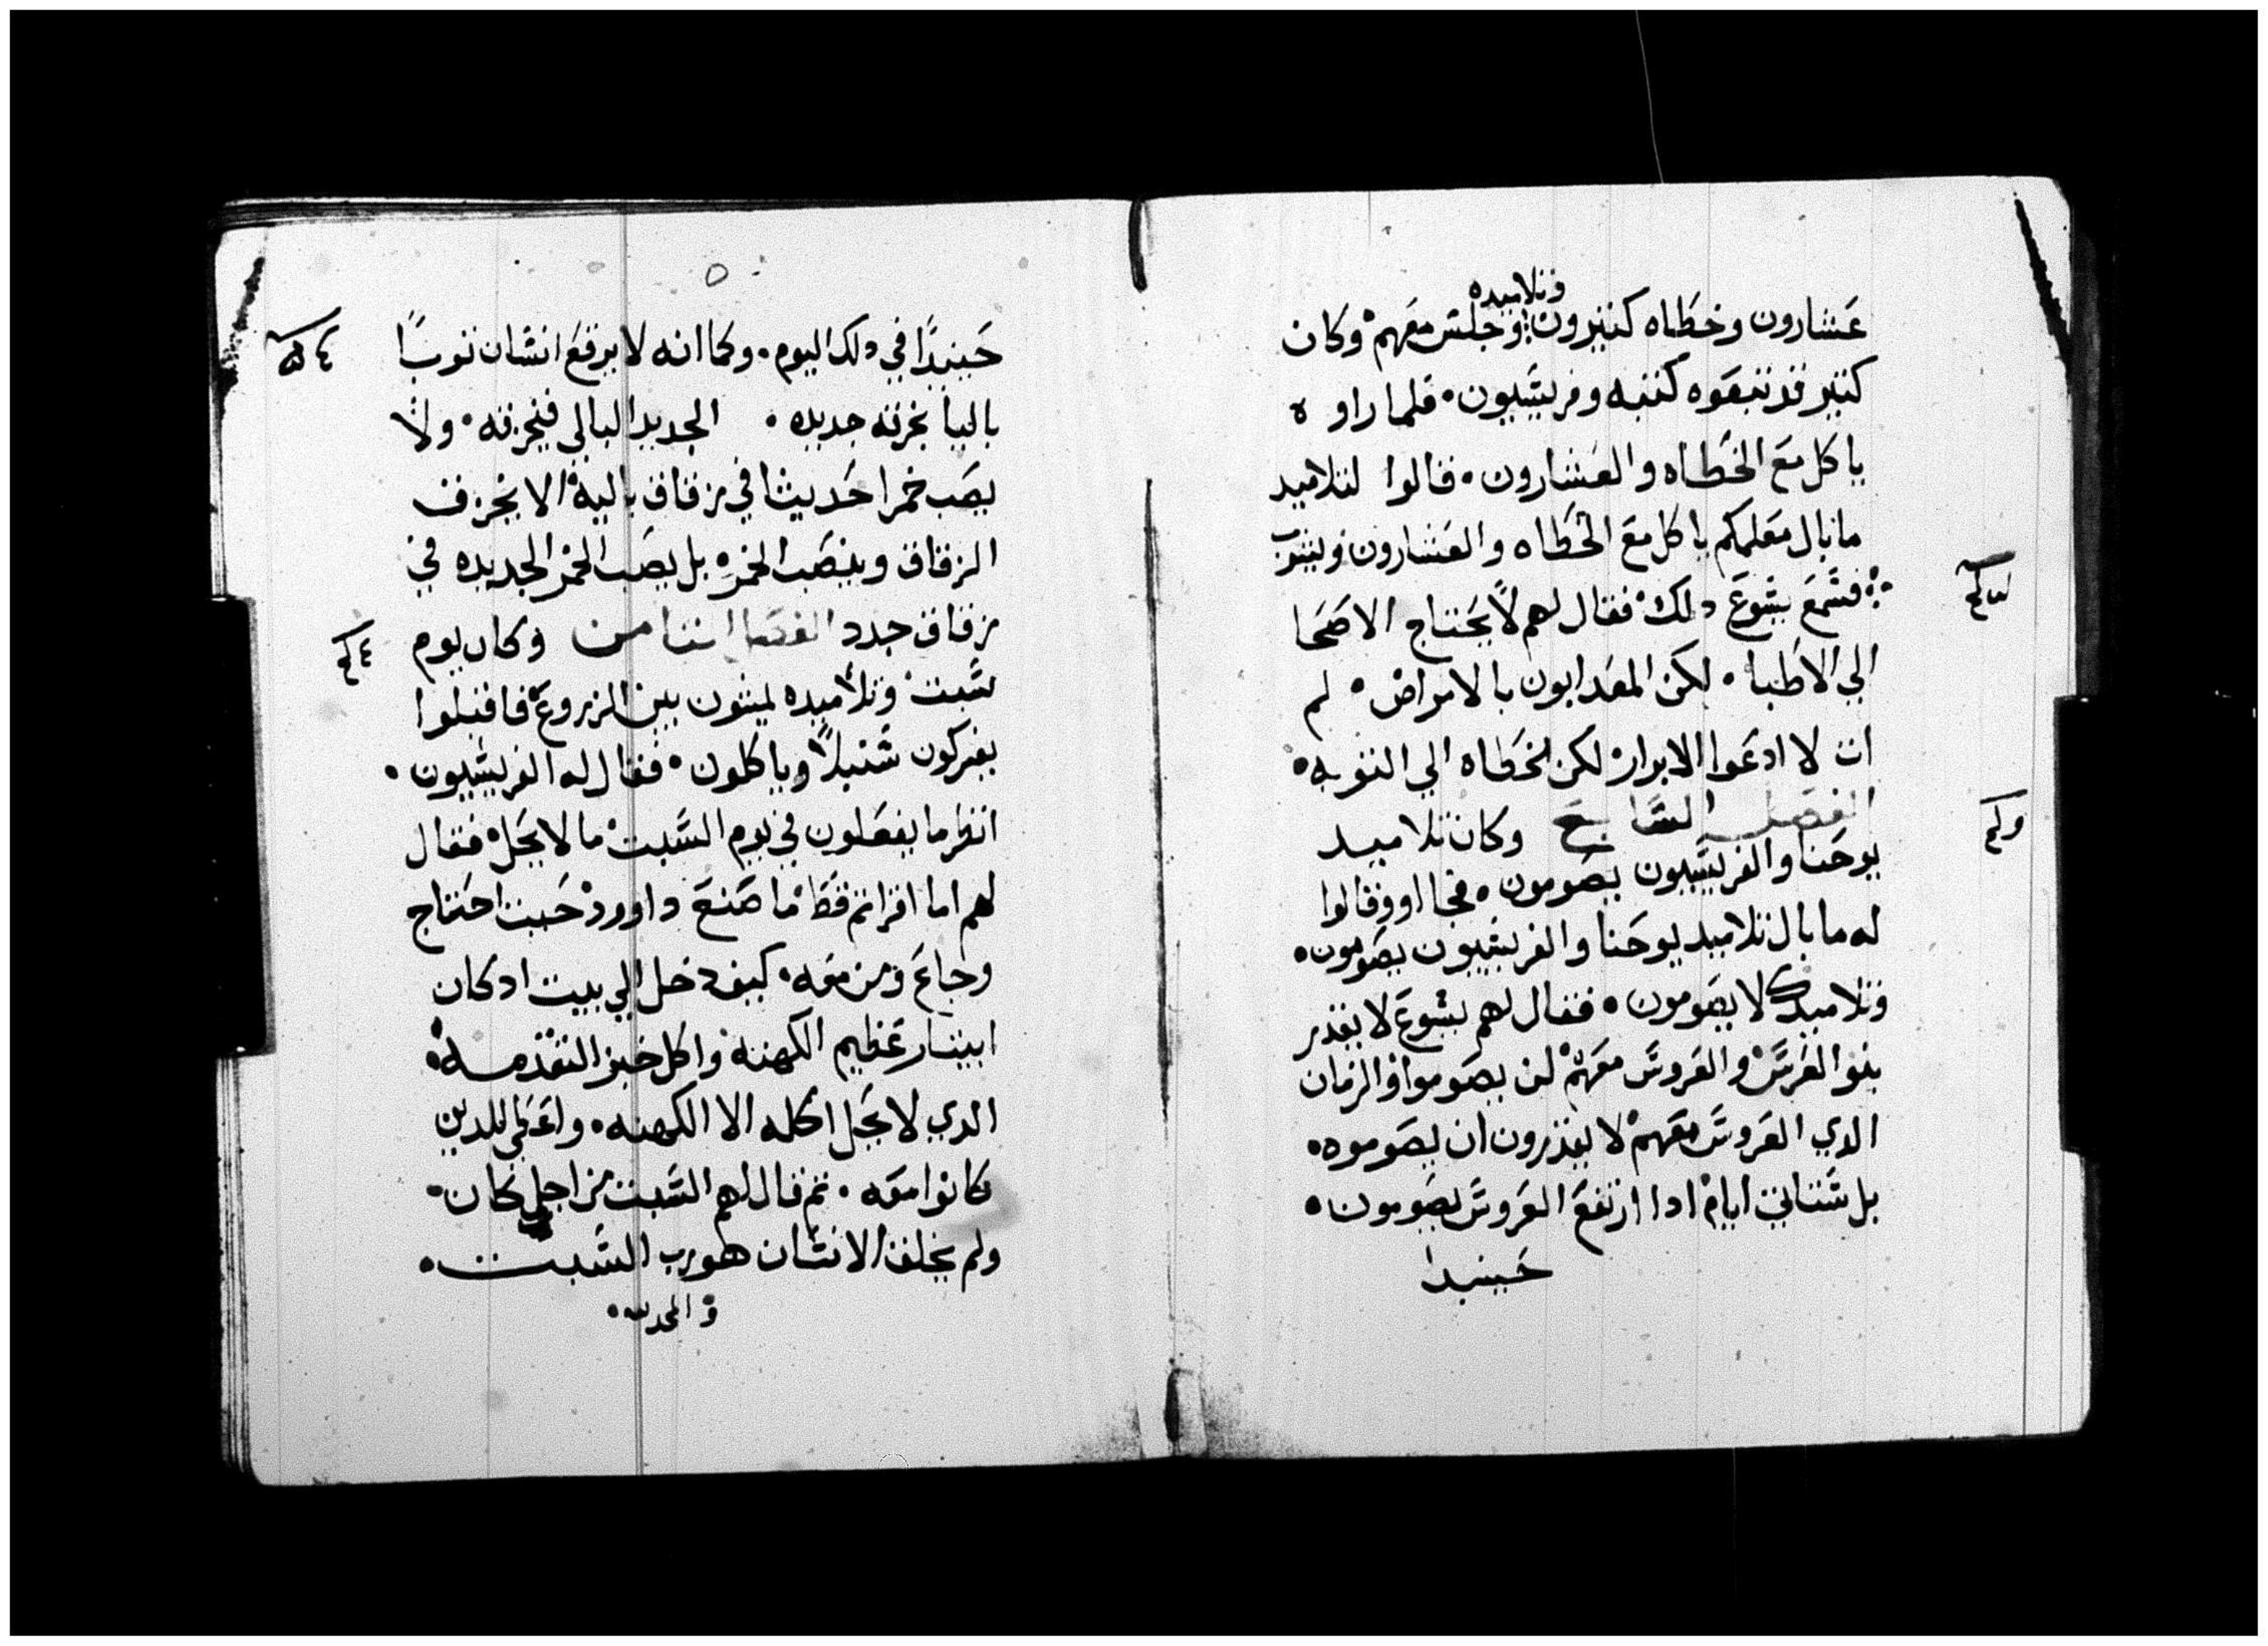 وتلاميده
عشارون وخطاه كتيرون وجلس معهم وكان
كتير قد تبعوه كتبه وفريسيون. فلما راوه
ياكل مع الخطاه والعشارون. قالوا لتلاميد
ما بال معلمكم ياكل مع الخطاه والعشارون ويشرب
فسمع يسوع دلك فقال لهم لا يحتاج الاصحا
الي الاطبا. لكن المعدابون بالامراض. لم
ات لا ادعوا الابرار لكن الخطاه الي التوبه.
الفصل السابع وكان تلاميد
يوحنا والفريسيون يصومون. فجااو وقالوا
له ما بال تلاميد يوحنا والفريسيون يصومون.
وتلاميدك لا يصومون. فقال لهم يسوع لا يقدر
بنوا العرس والعروس معهم لن يصوموا والزمان
الدي العروس معهم لا يقدرون ان يصوموه.
بل ستاتي ايام ادا ارتفع العروس يصومون.
حينيدا
٥
حينيدا في دلك اليوم. وكما انه لا يرقع انسان توبا
باليا بخرقه جديده. الجديد البالي فيخرقه. ولا
يصب خمرا حديثا في زقاق باليه الا يخرق
الزقاق وينصب الخمره بل يصب الخمر الجديده في
زقاق جدد الفصل التامن وكان يوم
سبت وتلاميده يمشون بين الزروع فاقبلوا
يفركون سنبلا وياكلون. فقال له الفريسيون.
انظر ما يفعلون في يوم السبت ما لا يحل فقال
لهم اما اقراتم قط ما صنع داوود حيت احتاج
وجاع ومن معه. كيف دخل الي بيت اد كان
ابيتار عظيم الكهنه واكل خبز التقدمه.
الدي لا يحل اكله الا الكهنه. واعطي للدين
كانوا معه. تم قال لهم السبت من اجل كان.
ولم يخلف الانسان هو رب السبت.
و المجد لله.